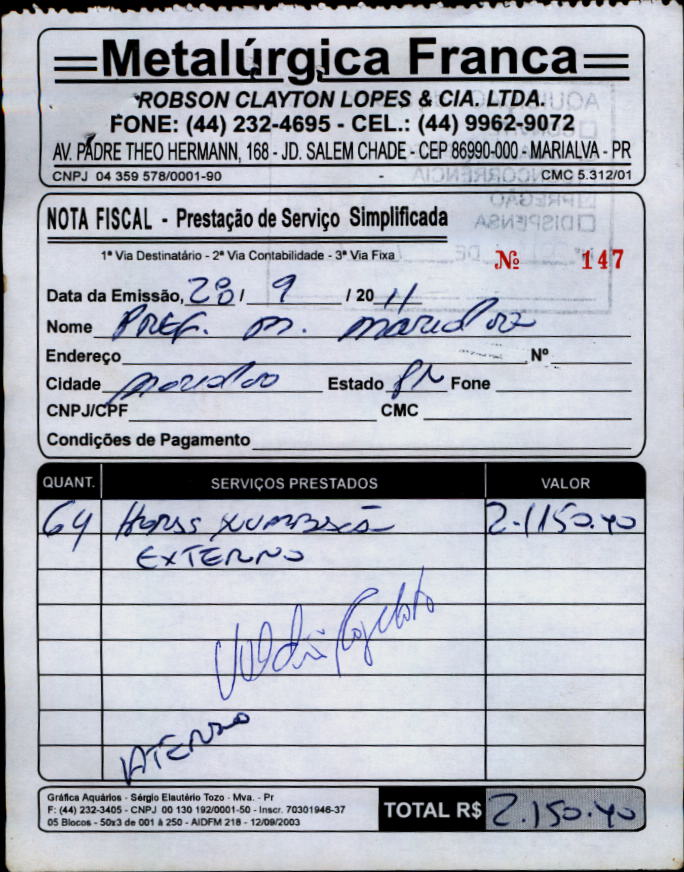 Metalúrgica Franca
ROBSON CLAYTON LOPES & CIA. LTDA.
FONE: (44) 232-4695 - CEL.: (44) 9962-9072
AV. PADRE THEO HERMANN, 168 - JD. SALEM CHADE - CEP 86990-000 - MARIALVA - PR
CNPJ 04 359 578/0001-90 - CMC 5.312/01
NOTA FISCAL - Prestação de Serviço Simplificada
1ª Via Destinatário - 2ª Via Contabilidade - 3ª Via Fixa
Nº 147
Data da Emissão, 28 / 9 / 20 11
Nome PREF. M. Marialva
Endereço Nº
Cidade Marialva Estado PR Fone
CNPJ/CPF CMC
Condições de Pagamento
QUANT. SERVIÇOS PRESTADOS VALOR
64 Horas 2.150.40
EXTERNO
Gráfica Aquários - Sérgio Elautério Tozo - Mva. - Pr
F: (44) 232-3405 - CNPJ 00 130 192/0001-50 - Inscr. 70301946-37
05 Blocos - 50x3 de 001 à 250 - AIDFM 218 - 12/09/2003
TOTAL R$ 2.150.40